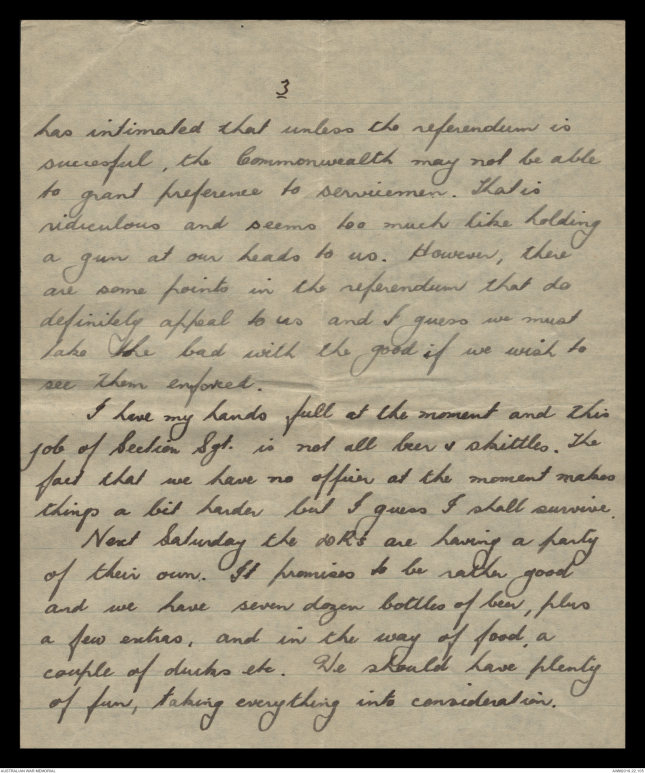 3
has intimated that unless the referendum is
succesful, the Commonwealth may not be able
to grant preference to servicemen. That is
ridiculous and seems too much like holding
a gun at our heads to us. However, there
are some points in the referendum that do
definitely appeal to us and I guess we must
take the bad with the good if we wish to
see them enforced.
I have my hands full at the moment and this
job of Section Sgt. is not all beer & skittles. The
fact that we have no officer at the moment makes
things a bit harder but I guess I shall survive.
Next Saturday the DRs are having a party
of their own. It promises to be rather good
and we have seven dozen bottles of beer, plus
a few extras, and in the way of food, a
couple of ducks etc. We should have plenty
of fun, taking everything into consideration.
AUSTRALIAN WAR MEMORIAL